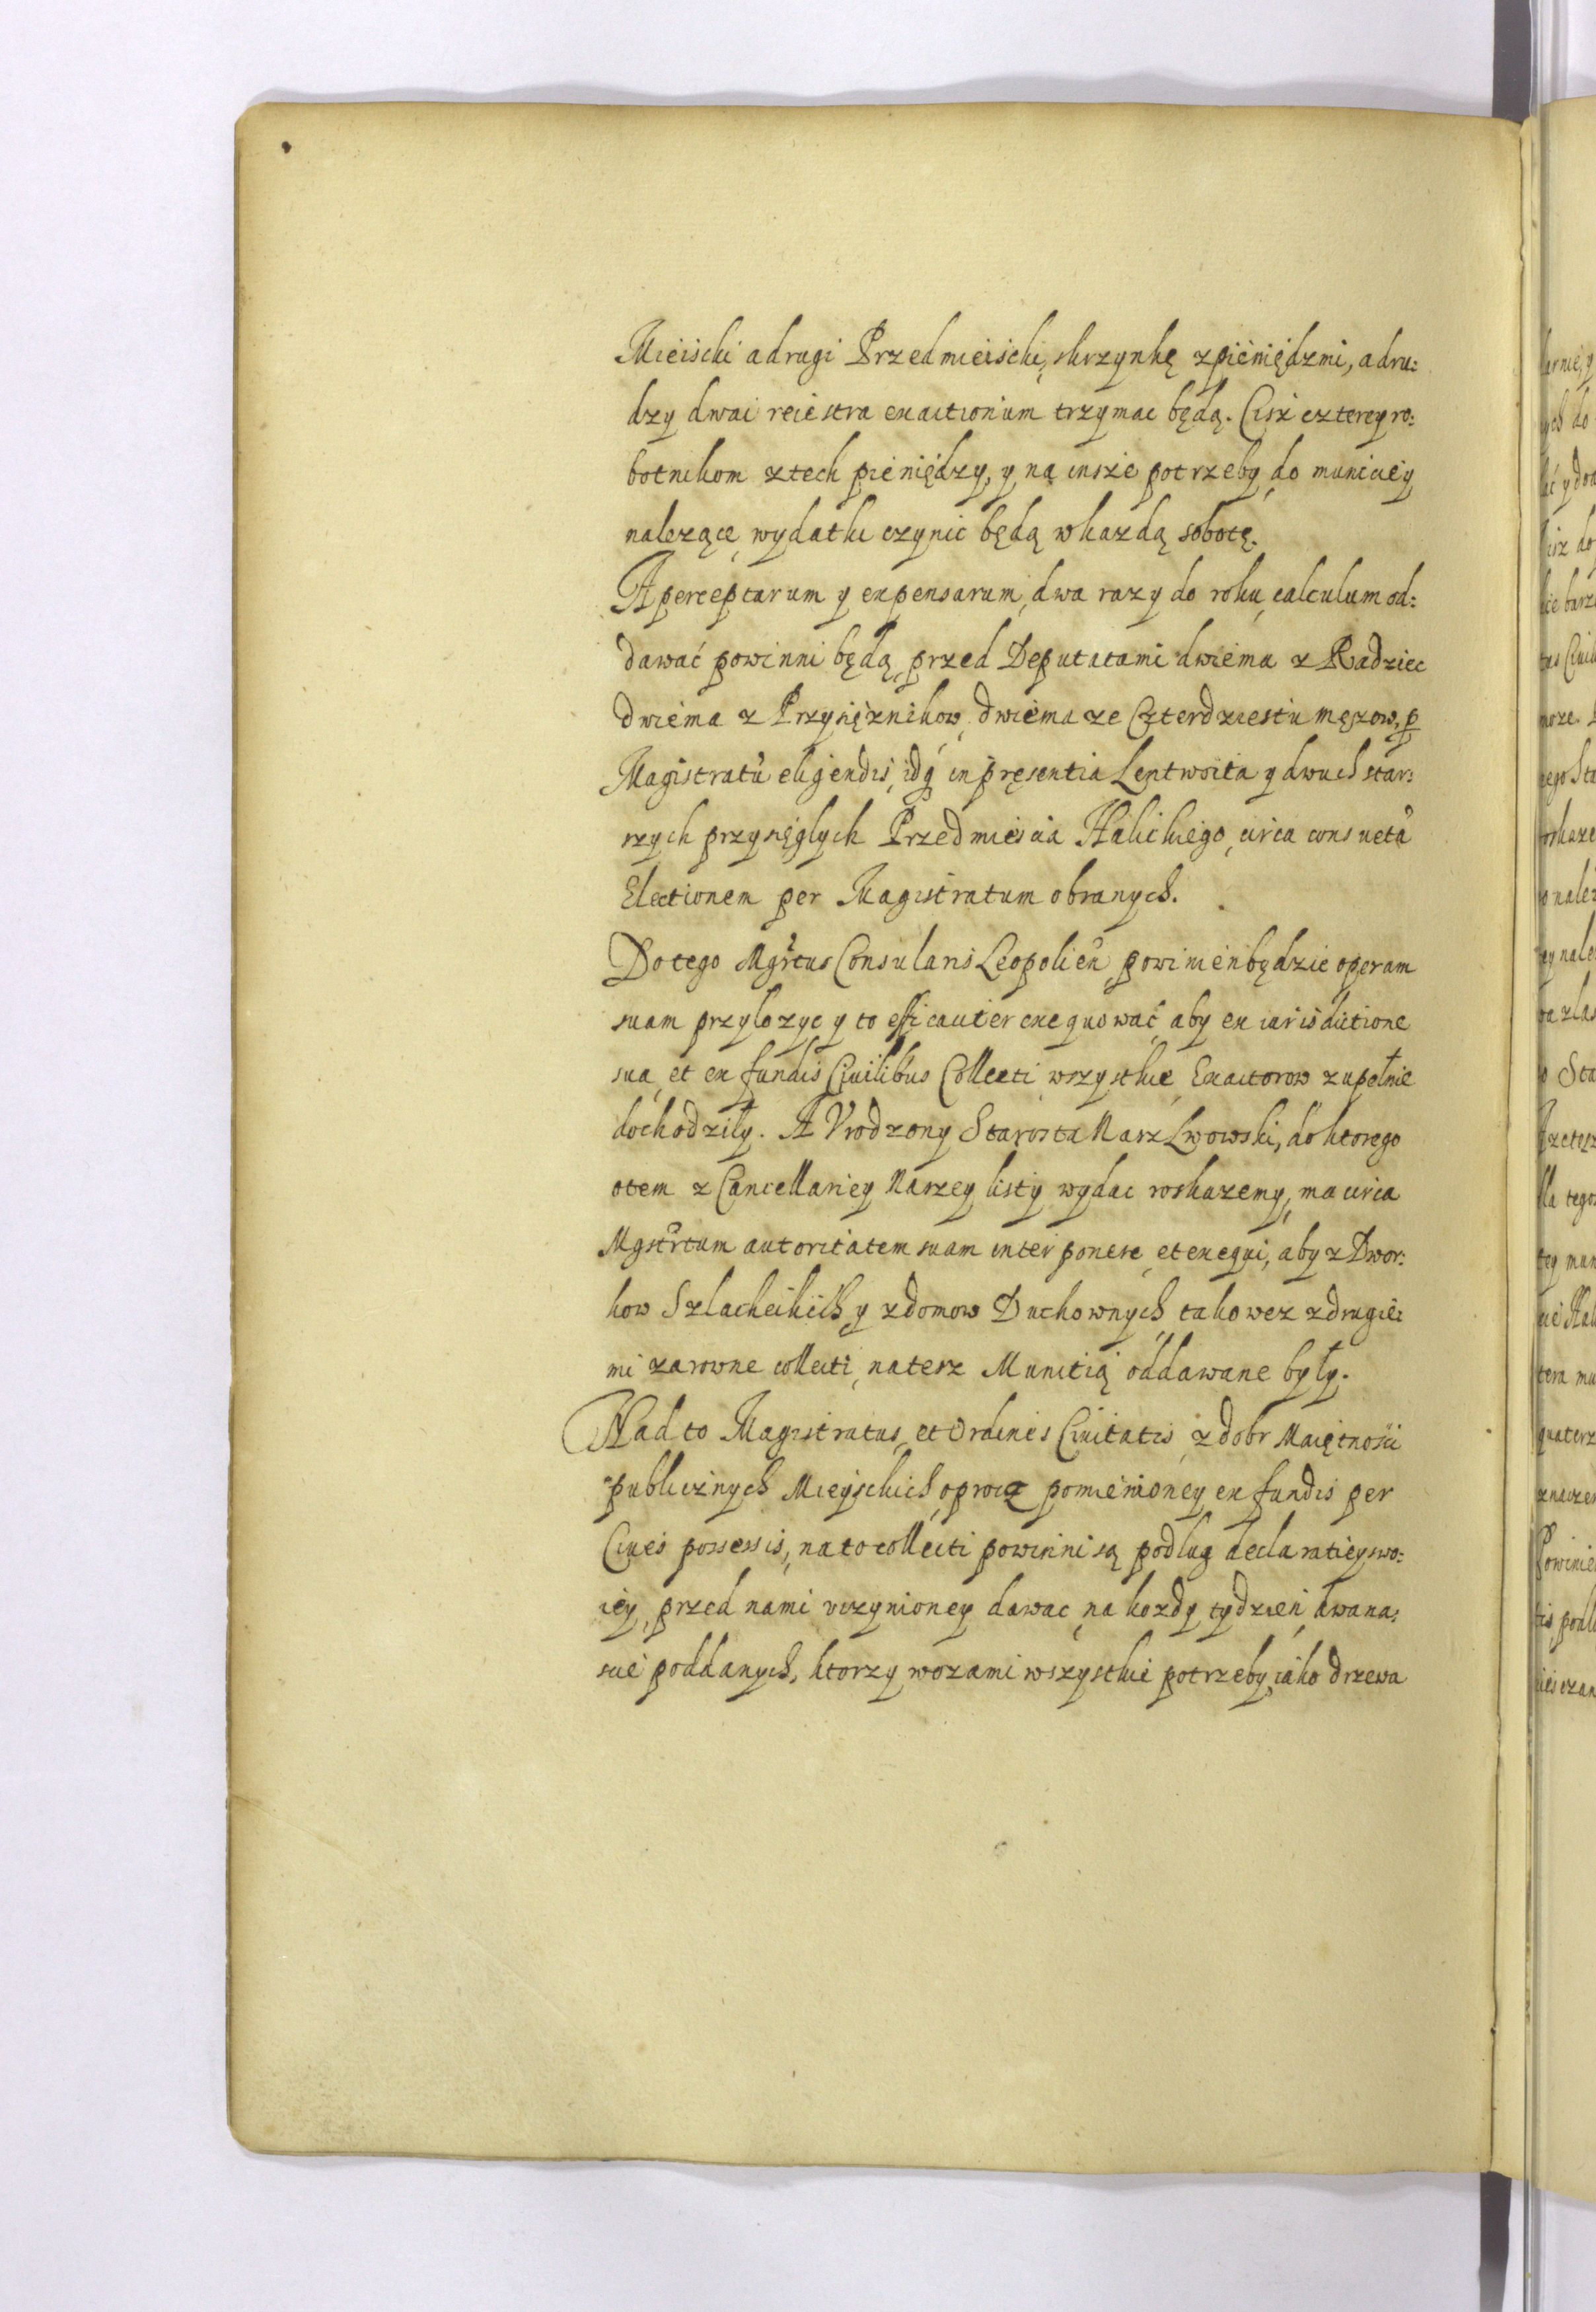 Mieiscki a drugi Przedmieiscki, skrzynkę z pieniędzmi, a dru:
dzy dwai reiestra exactionum trzymac będą. Cisz czterey ro:
botnikom z tech pieniędzy, y ną insze potrzeby do municiey
nalezące wydatki czynic będą w kazdą sobotę.
A perceptarum y expensarum, dwa razy do roku calculum od:
dawać powinni będą przed Deputatami dwiema z Radziec
dwiema z Przysięznikow, dwiema ze Czterdziestu męzow, p
Magistratu eligendis, idq in pręsentia Lentwoita y dwuch star:
szych przysięglych Przedmiescia Halickiego, circa consueta
Electionem per Magistratum obranych.
Do tego Mgrtus Consularis Leopolien powinien będzie operam
suam przylozyc y to efficaciter exequować aby ex iurisdictione
sua et ex fundis Ciuilibus Collecti wszystkie Exactorow zupełnie
dochodziły. A Vrodzony Starosta Nasz Lwowski, do ktorego
o tem z Cancellariey Naszey listy wydac roskazemy, ma circa
Mgstrtum autoritatem suam interponere et exequi, aby z Dwor:
kow Szlacheikich y z domow Duchownych takowez z drugie:
mi zarowne collecti, na tesz Munitią oddawane były.
Nad to Magistratus, et Ordines Ciuitatis z dobr Maiętnosci
publicznych Mieyskich oprocz pomienioney ex fundis per
Ciues possessis, na to collecti powinni są podlug declaratiey swo:
iey przed nami vczynioney dawac na kozdy tydzien dwana:
scie poddanych, ktorzy wozami wszystkie potrzeby iako drzewa